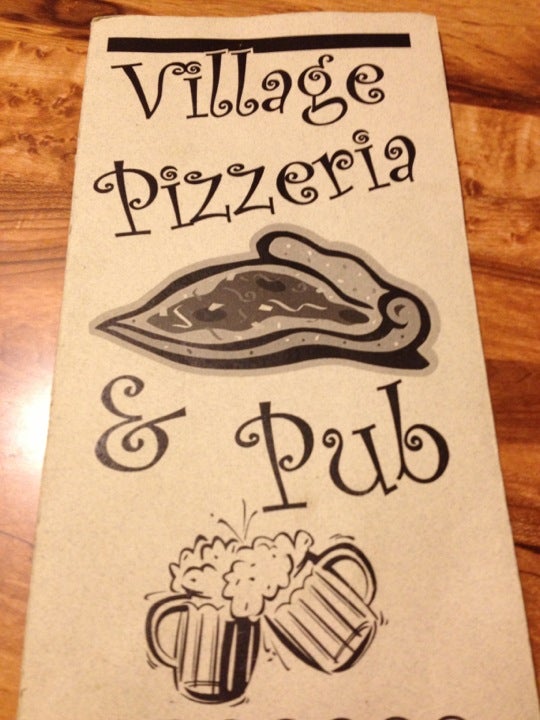 Village
Pizzeria
& Pub